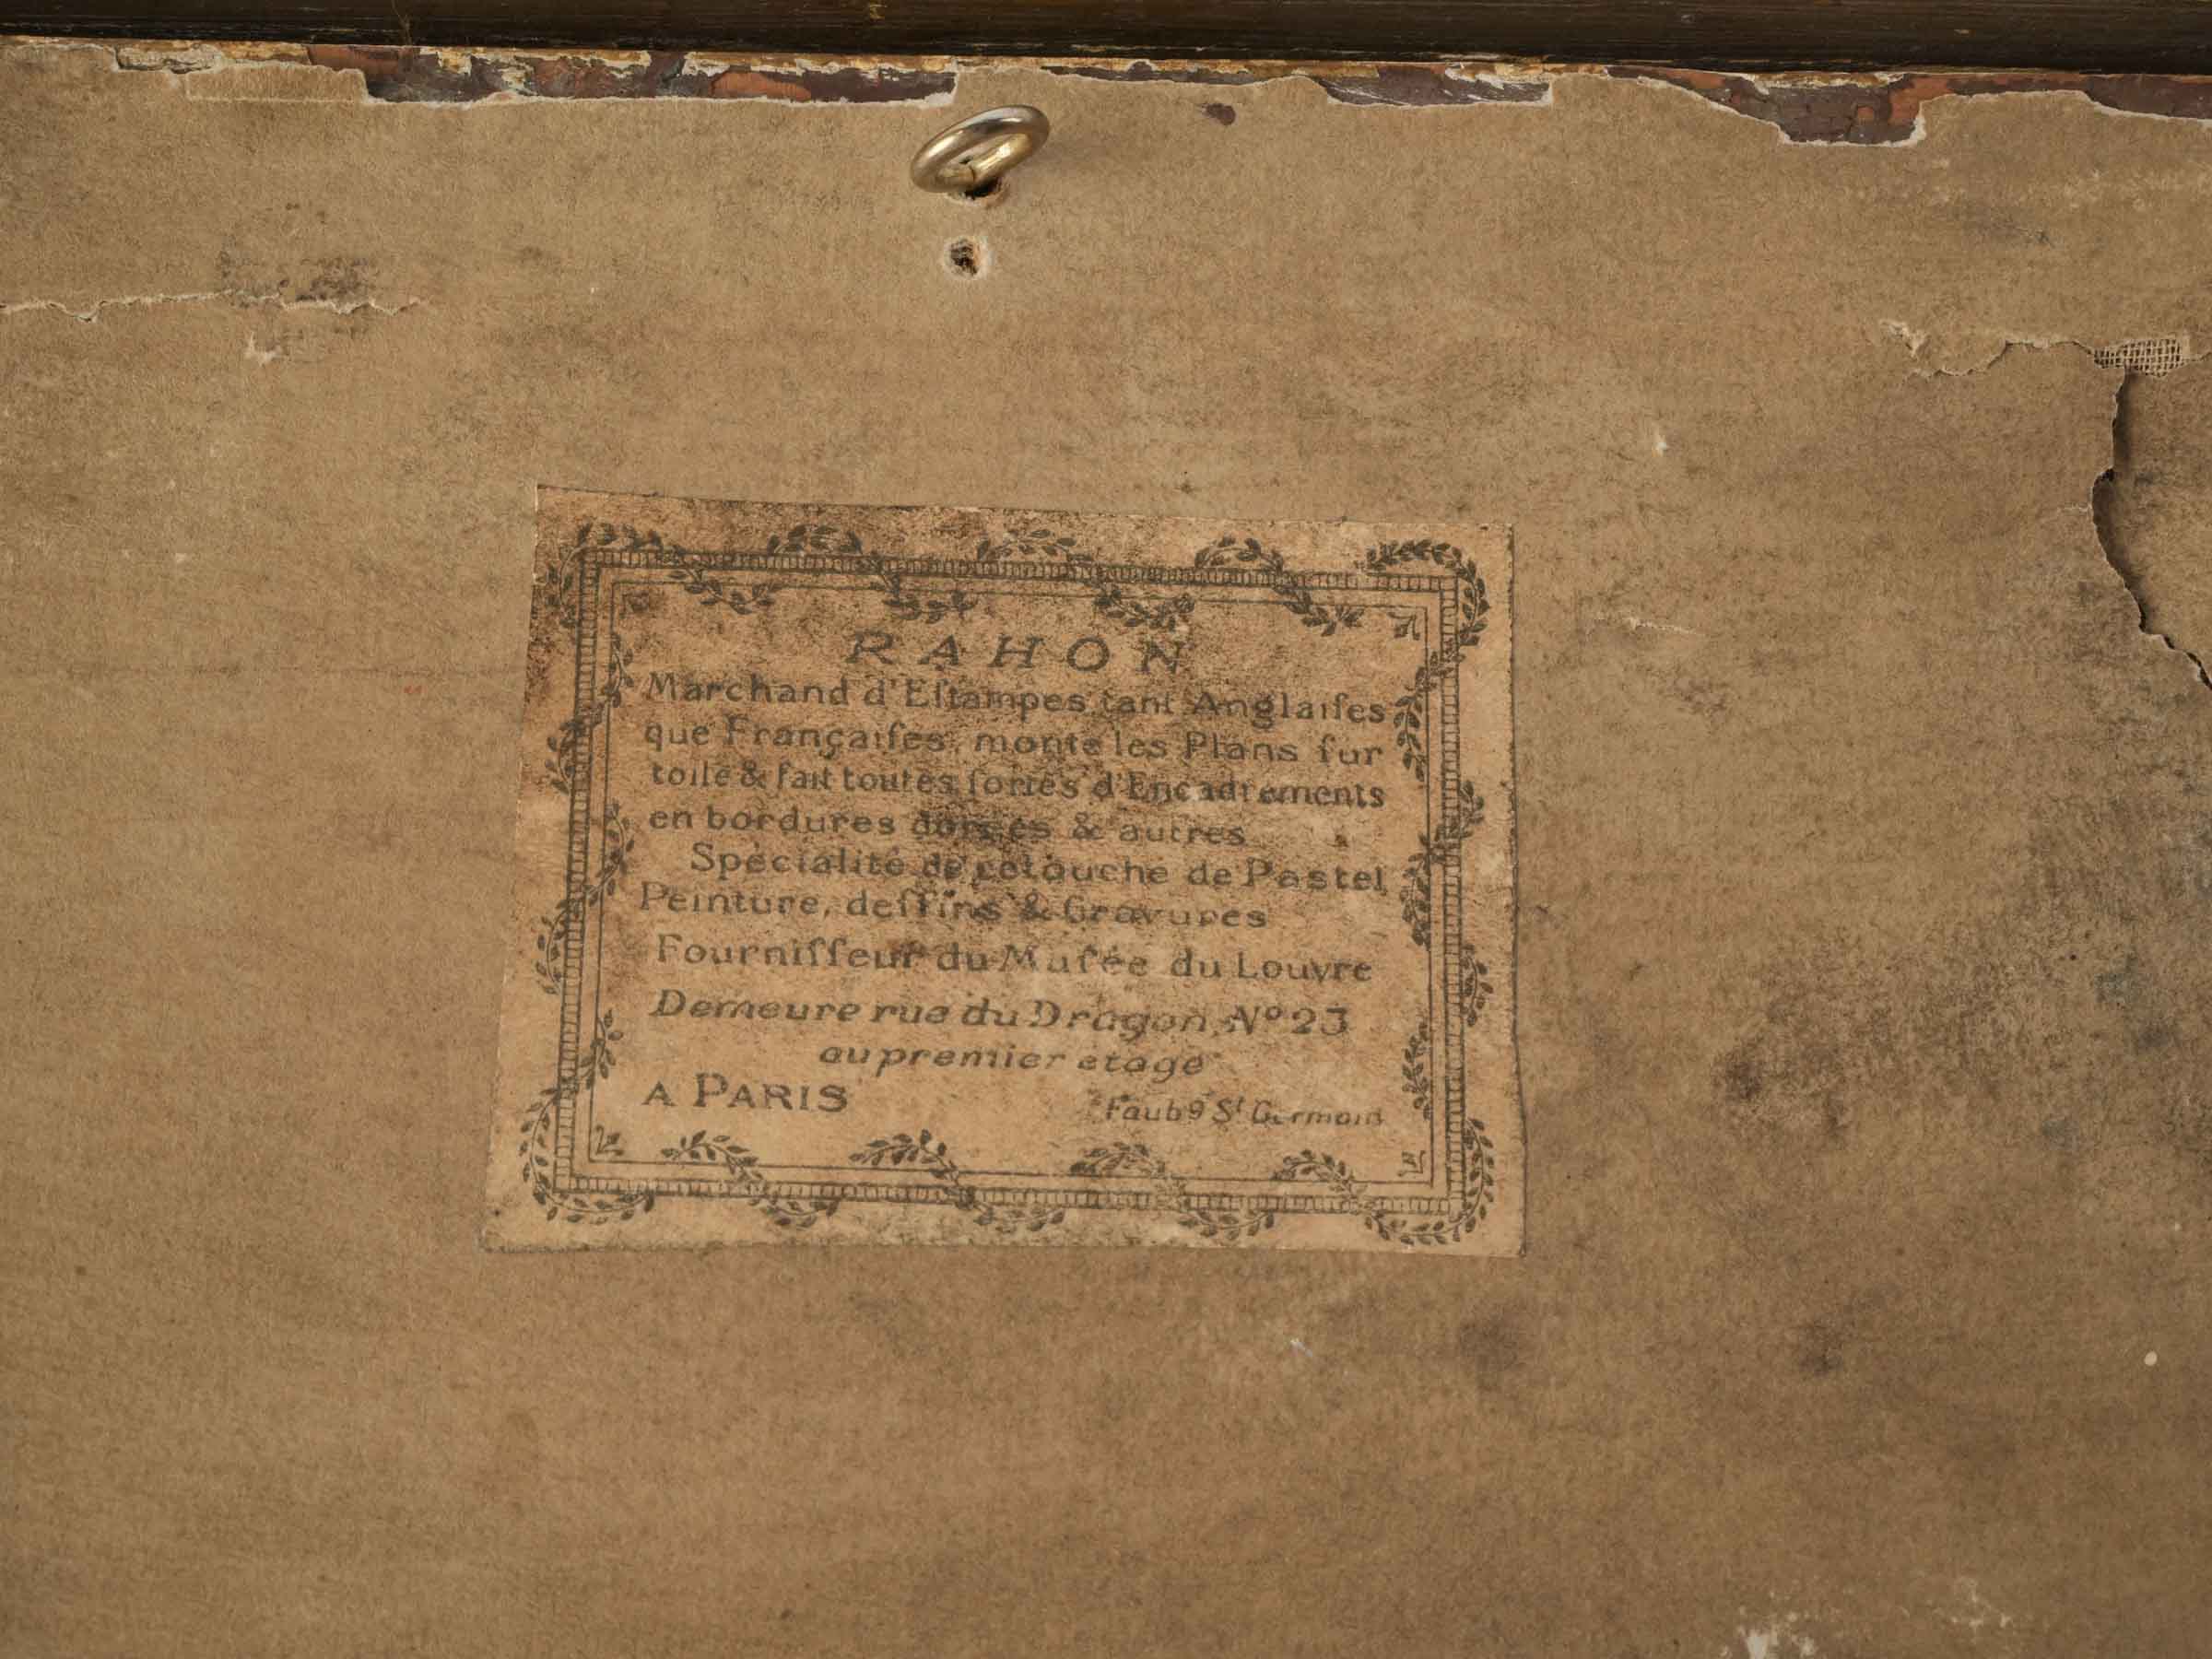 RAHON
Marchand d'Eſtampes tant Anglaiſes
que Françaiſes, monte les Plans ſur
toile & fait toutes ſortes d'Encadrements
en bordures dorées & autres
Spécialité de retouche de Pastel,
Peinture, deſſins & Gravures
Fourniſſeur du Muſée du Louvre
Demeure rue du Dragon, Nº 23
au premier etage
A PARIS Faubg St Germain